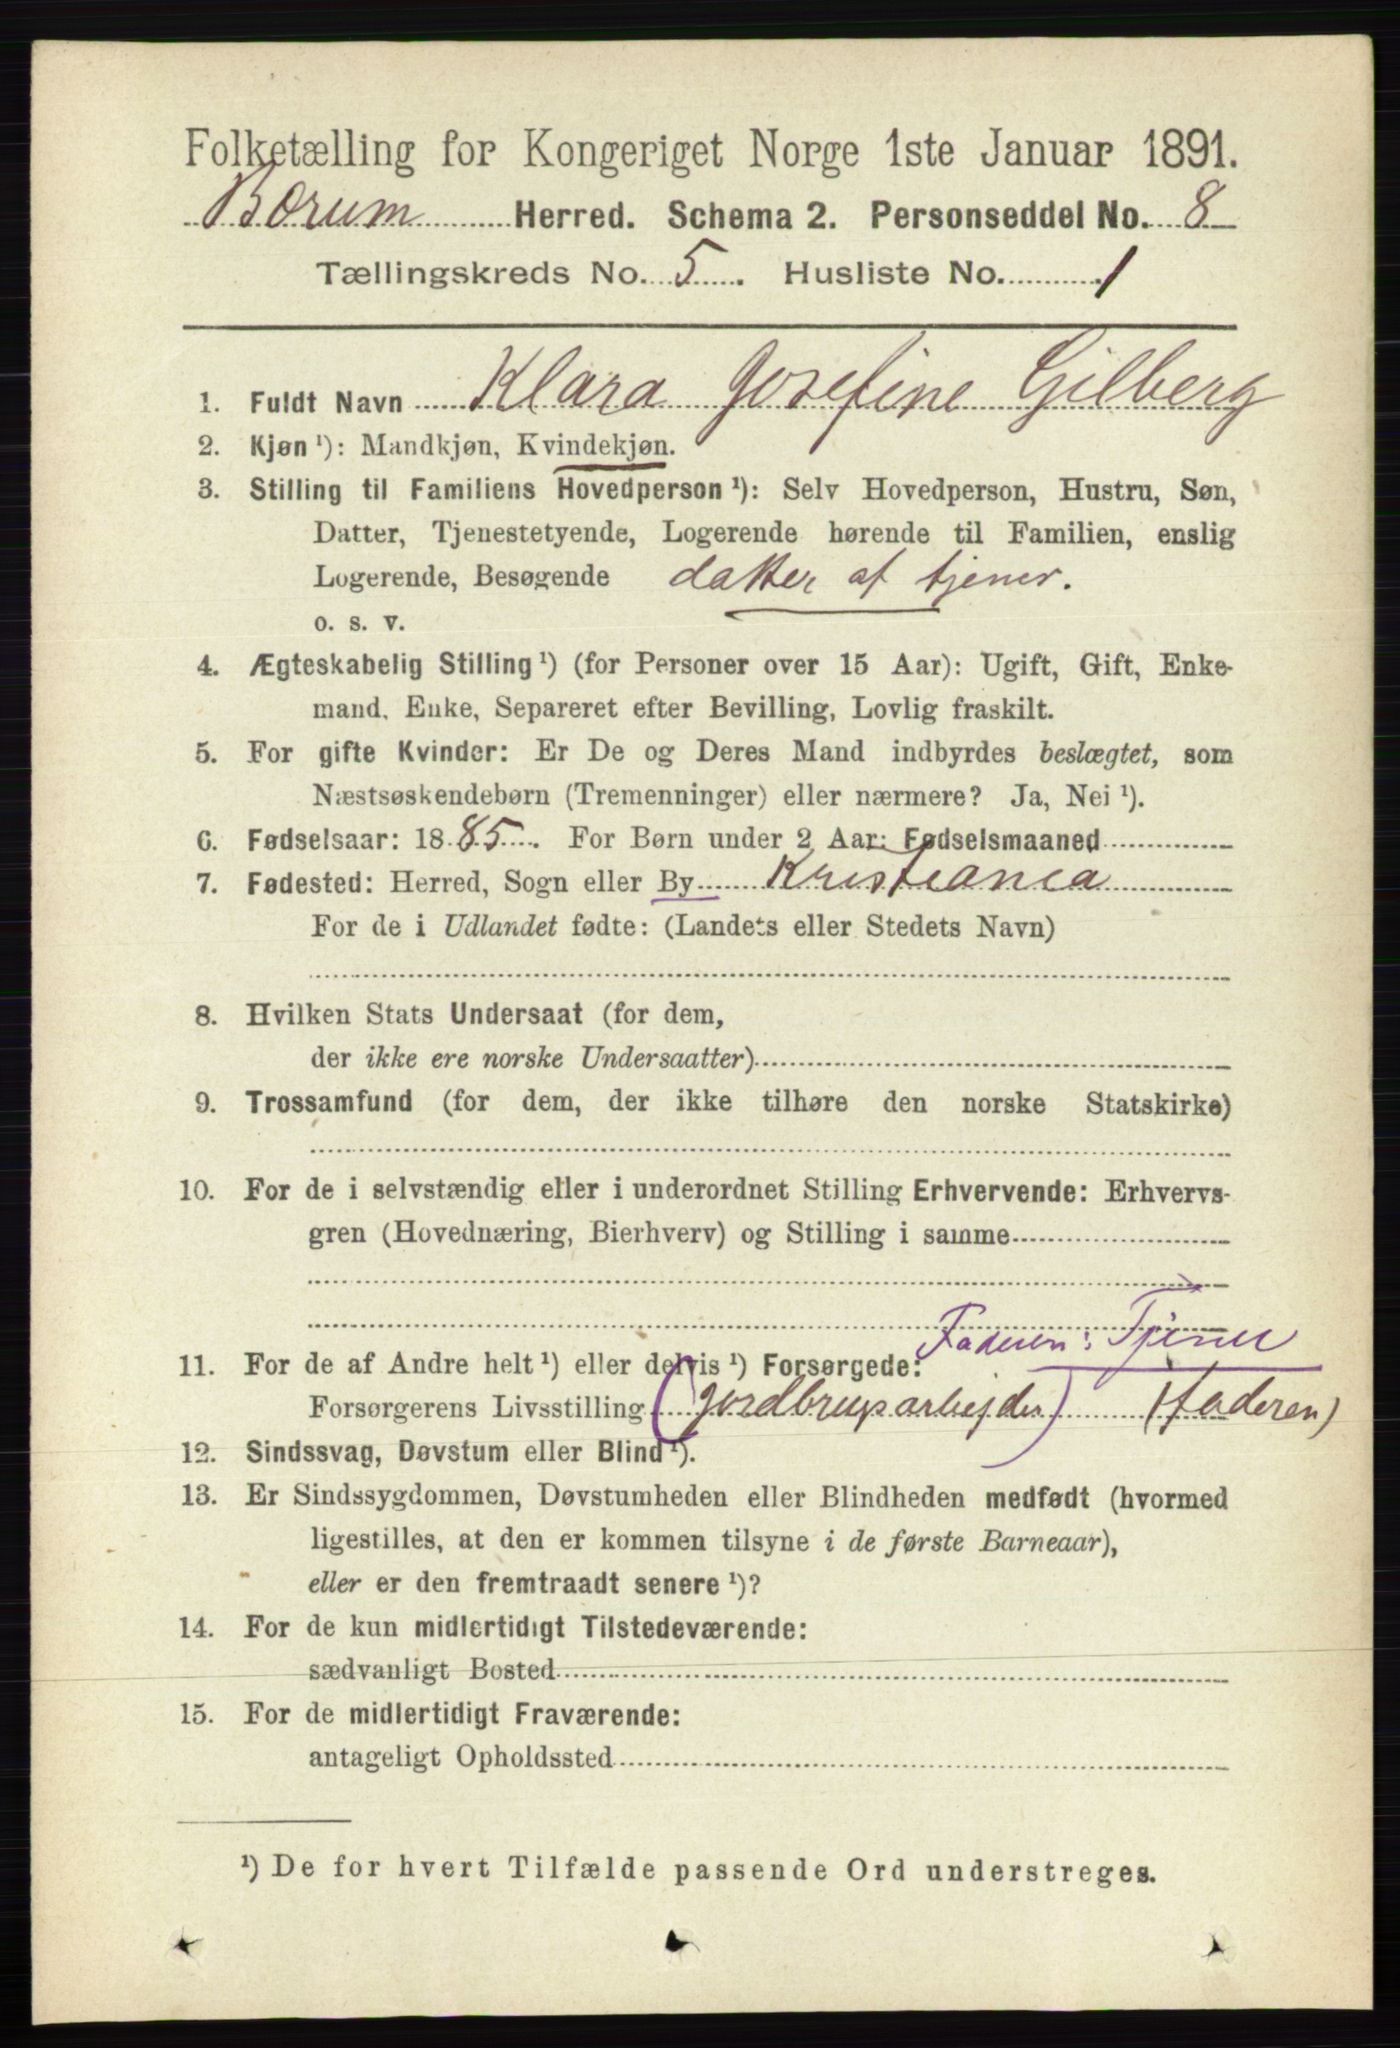 Folketælling for Kongeriget Norge 1ste Januar 1891.
Bærum Herred. Schema 2. Personseddel No. 8
Tællingskreds No. 5. Husliste No. 1
1. Fuldt Navn Klara Josefine Gilberg
2. Kjøn ¹): Mandkjøn, Kvindekjøn.
3. Stilling til Familiens Hovedperson ¹): Selv Hovedperson, Hustru, Søn,
Datter, Tjenestetyende, Logerende hørende til Familien, enslig
Logerende, Besøgende datter af tjener.
o. s. v.
4. Ægteskabelig Stilling ¹) (for Personer over 15 Aar): Ugift, Gift, Enke-
mand, Enke, Separeret efter Bevilling, Lovlig fraskilt.
5. For gifte Kvinder: Er De og Deres Mand indbyrdes beslægtet, som
Næstsøskendebørn (Tremenninger) eller nærmere? Ja, Nei ¹).
6. Fødselsaar: 1885. For Børn under 2 Aar: Fødselsmaaned
7. Fødested: Herred, Sogn eller By Kristiania
For de i Udlandet fødte: (Landets eller Stedets Navn)
8. Hvilken Stats Undersaat (for dem,
der ikke ere norske Undersaatter)
9. Trossamfund (for dem, der ikke tilhøre den norske Statskirke)
10. For de i selvstændig eller i underordnet Stilling Erhvervende: Erhvervs-
gren (Hovednæring, Bierhverv) og Stilling i samme
Faderen: Tjener
11. For de af Andre helt ¹) eller delvis ¹) Forsørgede:
Forsørgerens Livsstilling (Jordbrugsarbejder) (Faderen)
12. Sindssvag, Døvstum eller Blind ¹).
13. Er Sindssygdommen, Døvstumheden eller Blindheden medfødt (hvormed
ligestilles, at den er kommen tilsyne i de første Barneaar),
eller er den fremtraadt senere ¹)?
14. For de kun midlertidigt Tilstedeværende:
sædvanligt Bosted
15. For de midlertidigt Fraværende:
antageligt Opholdssted
¹) De for hvert Tilfælde passende Ord understreges.